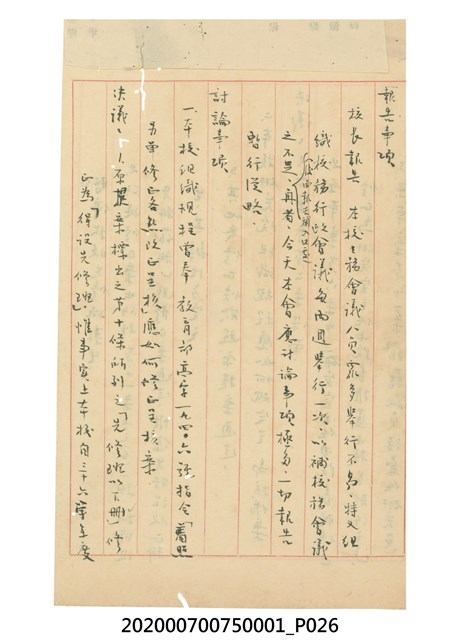 報告事項
校長報告 本校校務會議人員衆多舉行不易、特又組
織校務行政會議每兩週舉行一次、以補校務會議
之不足、再者、今天本會應討論事項極多、一切報告
暫行從略、
討論事項
一、本校組織規程曾奉 教育部高字一九四〇六號指令「舊照
另單修正各點改正呈核」應如何修正呈核案
決議、1.原提案標出之第十條所列之「先修班以下刪」修
正為「得設先修班」惟事實上本校自三十六學年度
202000700750001_P026